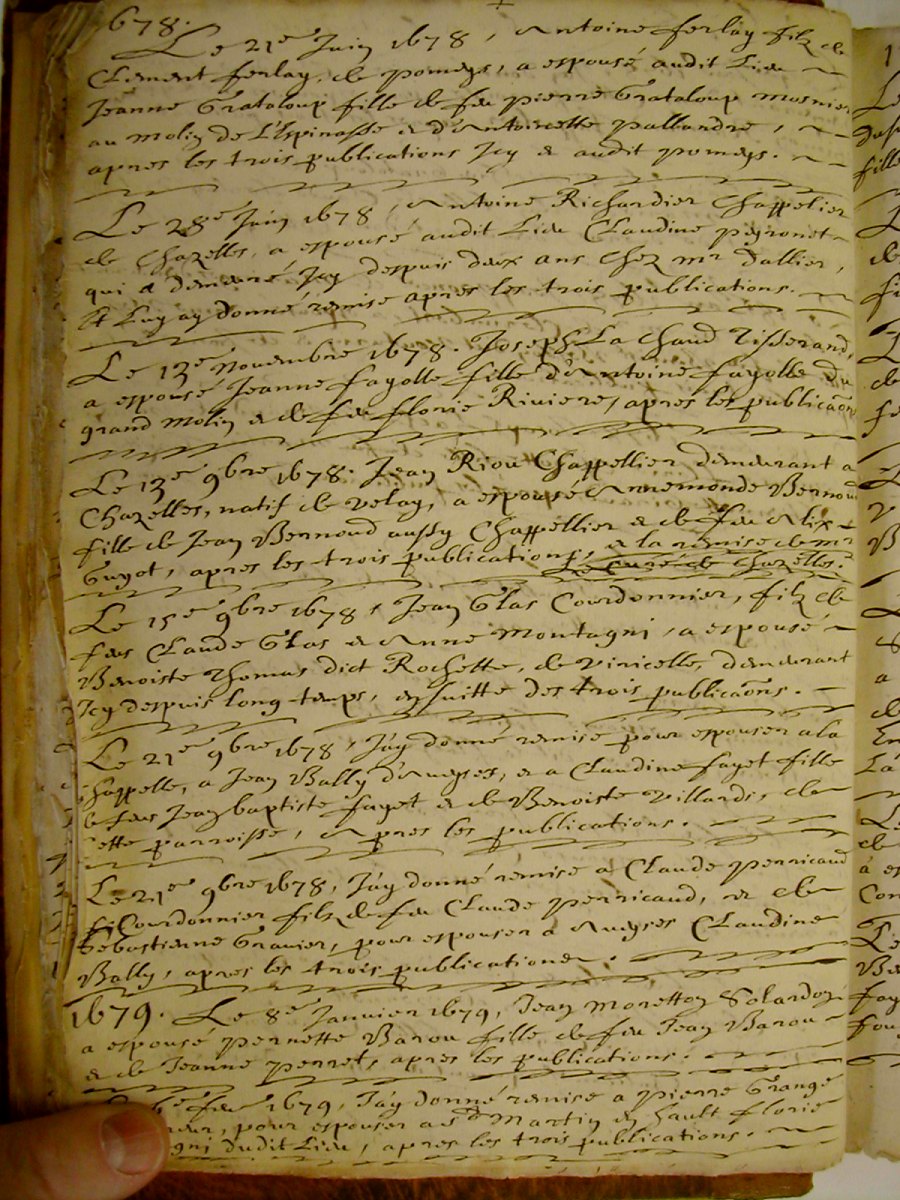 678.
Le 21e Juin 1678, Antoine ferlay filz de
Clement ferlay, de pomeys, a espousé audit Lieu
Jeanne Grataloup fille de feu pierre Grataloup mosnier
au molin de L'Espinasse & d'Antoinette pallandre,
apres les trois publications Icy & audit pomeys.
Le 28e Juin 1678, Antoine Richardier Chappelier
de Chazelles, a espousé audit Lieu Claudine peyronet
qui a demeuré Icy despuis deux ans Chez mr dallier,
Et Luy ay donné remise apres les trois publications.
Le 13e Novembre 1678. Joseph La Chaud Tisserand,
a espousé Jeanne fayolle fille d'Antoine fayolle du
grand molin & de feu florie Riviere, apres les publicaons
Le 13e 9bre 1678. Jean Riou Chappellier demeurant a
Chazelles, natif de velay, a espousé Annemonde Bernoud
fille de Jean Bernoud aussy Chappellier & de feu Alix
Guyot, apres les trois publications, & la remise de mr
Le Curé de Chazelles.
Le 15e 9bre 1678, Jean Glas Courdonnier, filz de
feu Claude Glas & Anne Montagni, a espousé
Benoiste Thomas dict Rochette, de viricelle, demeurant
Icy despuis long temps, ensuitte des trois publicaons.
Le 21e 9bre 1678, J'ay donné remise pour espouser a la
Chappelle, a Jean Bally d'Aveyses, & a Claudine fayet fille
de feu Jean baptiste fayet & de Benoiste Villards, de
cette parroisse, Apres les publications.
Le 21e 9bre 1678, J'ay donné remise a Claude perricaud
Courdonnier filz de feu Claude perricaud, & de
Sebastienne Gravier, pour espouser a Aveyses Claudine
Bally, apres les trois publications.
1679. Le 8e Janvier 1679, Jean Moretton Solardon,
a espousé pernette Barou fille de feu Jean Barou
& de Jeanne perret, apres les publications.
1679, J'ay donné remise a pierre Grange
pour espouser a St Martin en hault florie
dudit Lieu, apres les trois publications.